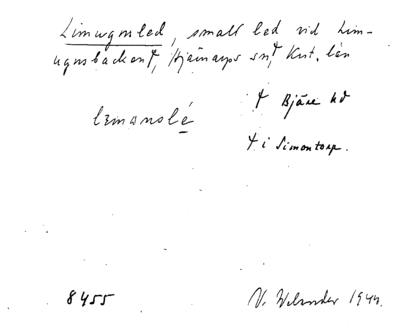 Limugnsled, smalt led vid Lim-
ugnsbacken†, Hjärnarps sn, Krist. län
† Bjäre hd
† i Simontorp.
8455
V. Welander 1944.